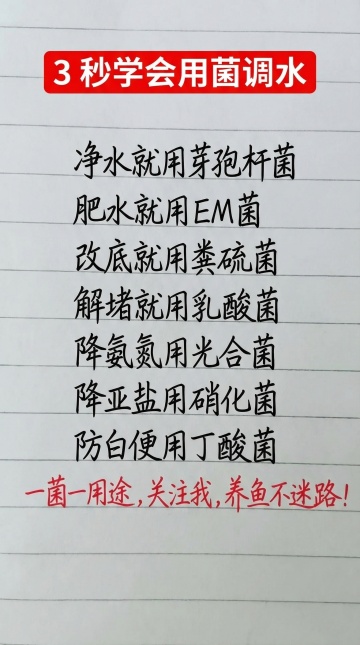 3秒学会用菌调水
净水就用芽孢杆菌
肥水就用EM菌
改底就用粪硫菌
解堵就用乳酸菌
降氨氮用光合菌
降亚盐用硝化菌
防白便用丁酸菌
一菌一用途,关注我,养鱼不迷路!